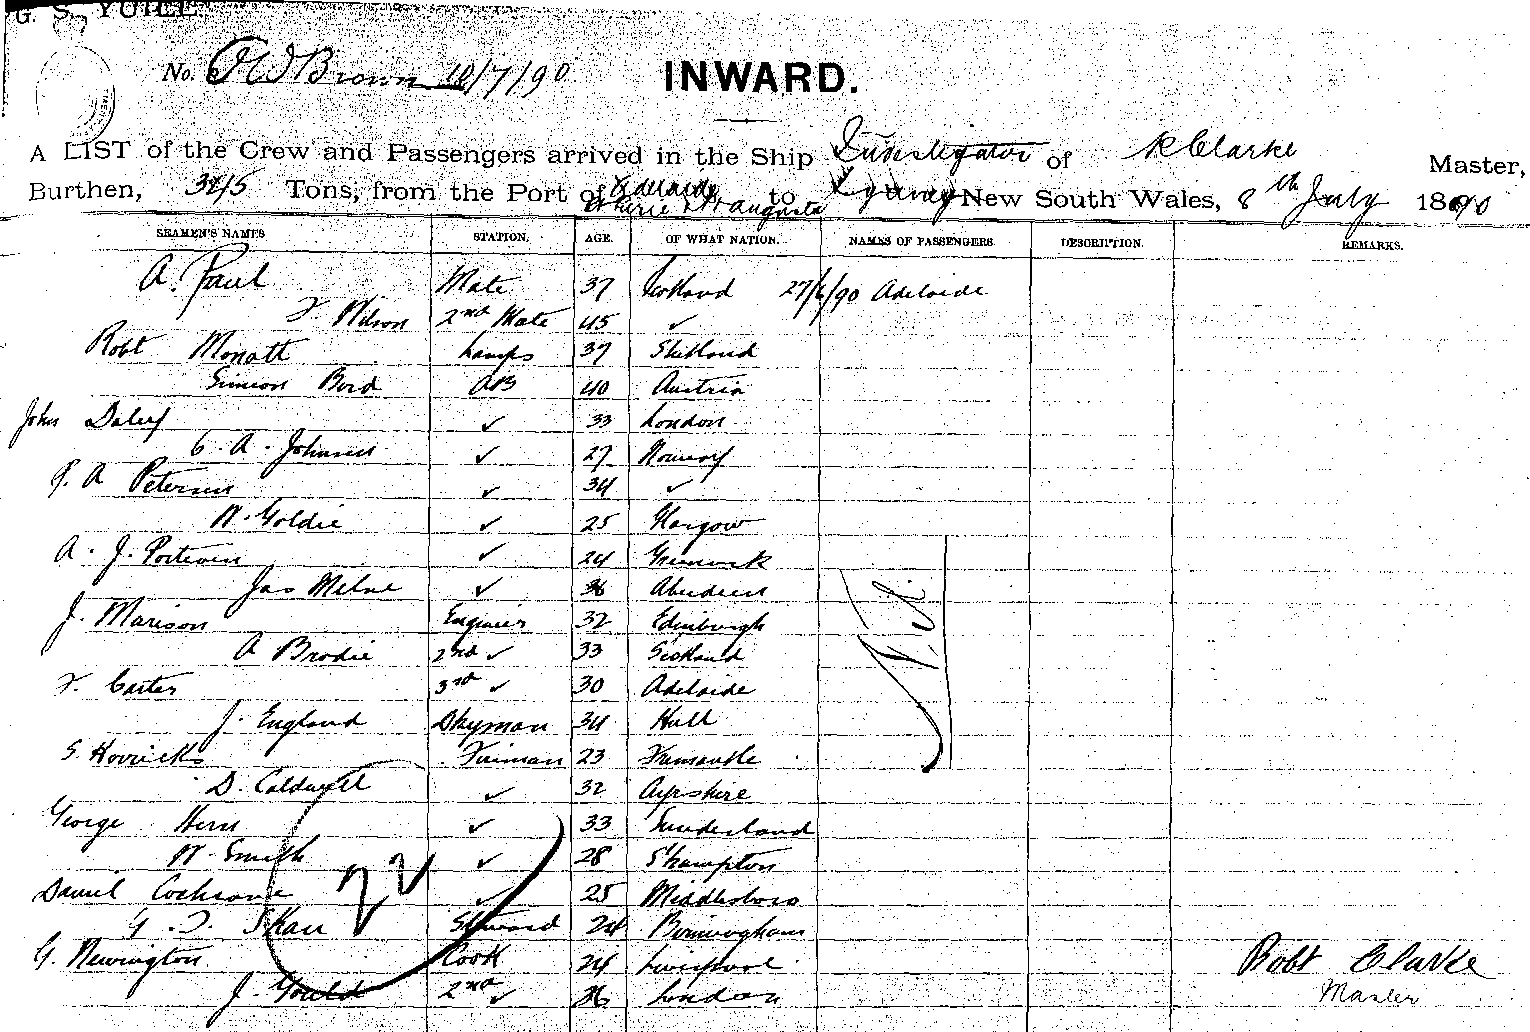 G. S. YUILL
No. J W Brown 10/7/90
INWARD.
A LIST of the Crew and Passengers arrived in the Ship Investigator of R Clarke Master,
Burthen, Tons, from the Port of Adelaide Pt Pirie & Pt augusta to Sydney New South Wales, 8th July 1890
SEAMEN'S NAMES STATION. AGE. OF WHAT NATION. NAMES OF PASSENGERS. DESCRIPTION. REMARKS.
A. Paul Mate 37 Scotland 27/6/90 Adelaide
F Wilson 2nd Mate 45 ✓
Robt Lamps 37 Shetland
Simeon AB 40 Austria
John Daley ✓ 33 London
C. A. Johnsen ✓ 27 Norway
P. A Petersen ✓ 34 ✓
W. Goldie ✓ 25 Glasgow
A. J. ✓ 24 Greenock
Jas Milne ✓ Aberdeen
J. Marison Engineer 32 Edinburgh
A Brodie 2nd ✓ 33 Scotland
F. Carter 3rd ✓ 30 Adelaide
J. England Dkyman 34 Hull
S. Horricks Fireman 23 Fremantle
D. Caldwell ✓ 32 Ayrshire
George Hern ✓ 33 Sunderland
W. Smith ✓ 28 S'hampton
Daniel Cochrane ✓ 25 Middlesboro
22
G. Skau Steward 24 Birmingham
G. Newington Cook 24 Liverpool
J. Gould 2nd ✓ 26 London
Robt Clarke
Master